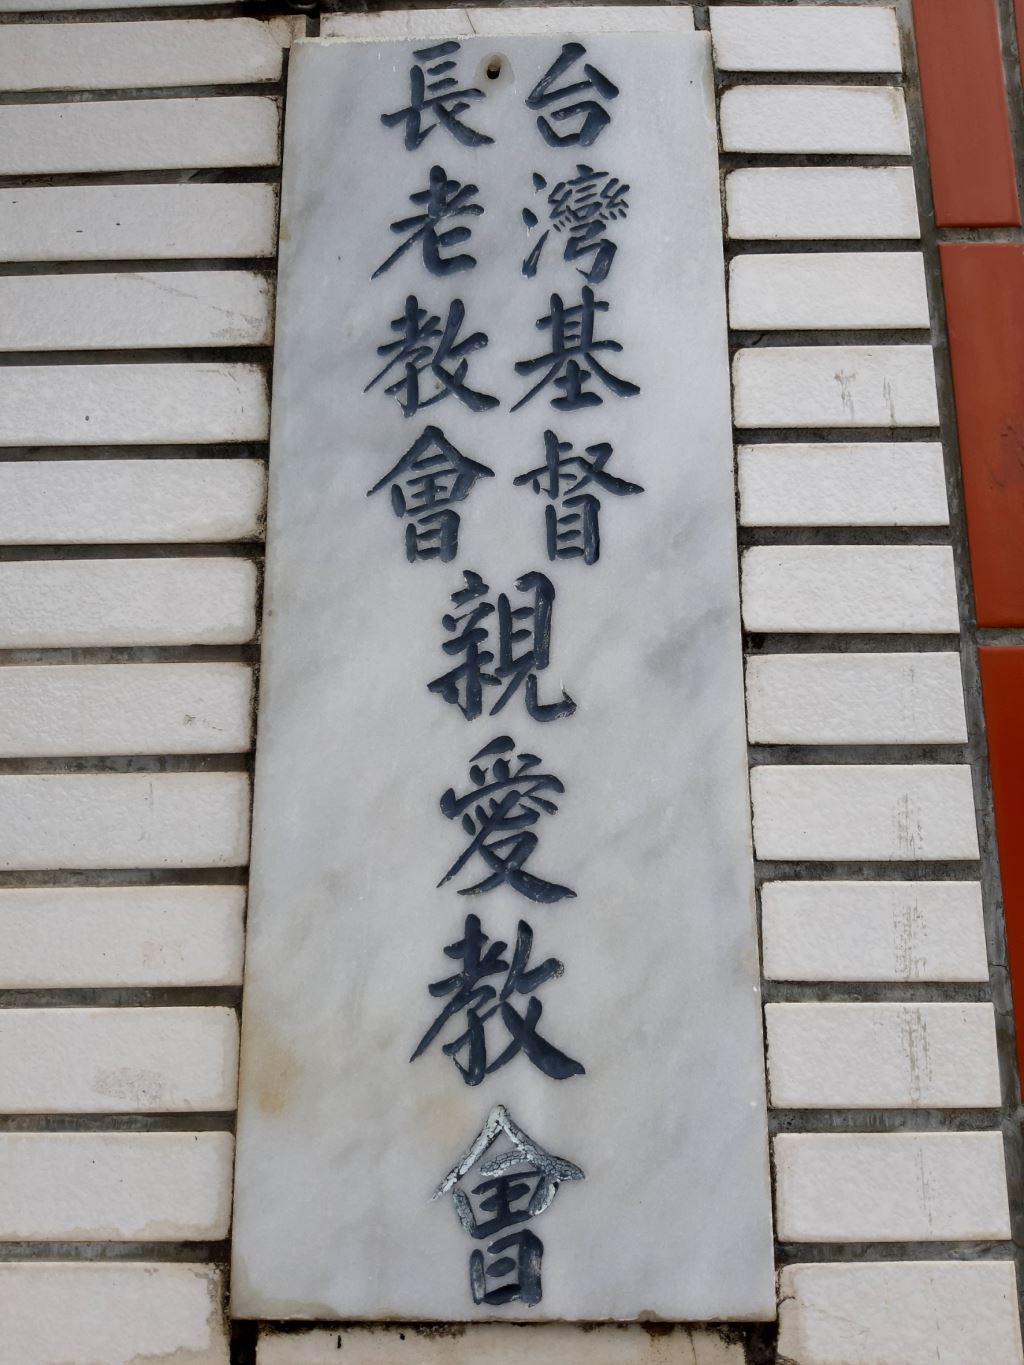 台灣基督
長老教會
親愛教會